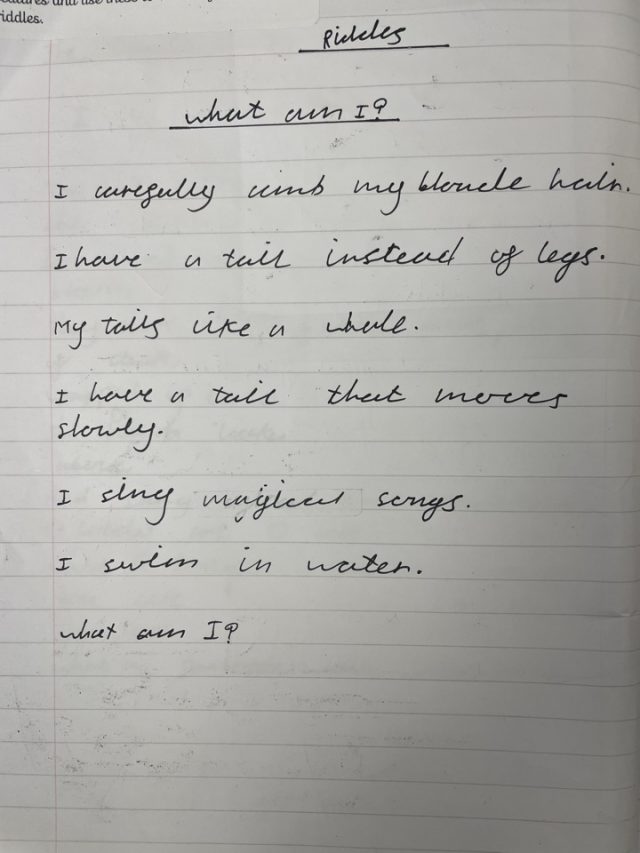 and use these
iddles.
Riddles
what am I?
I caregully comb my blonde hair.
I have a tail instead of legs.
My tails like a whale.
I have a tail that moves
slowly.
I sing magical songs.
I swim in water.
what am I?